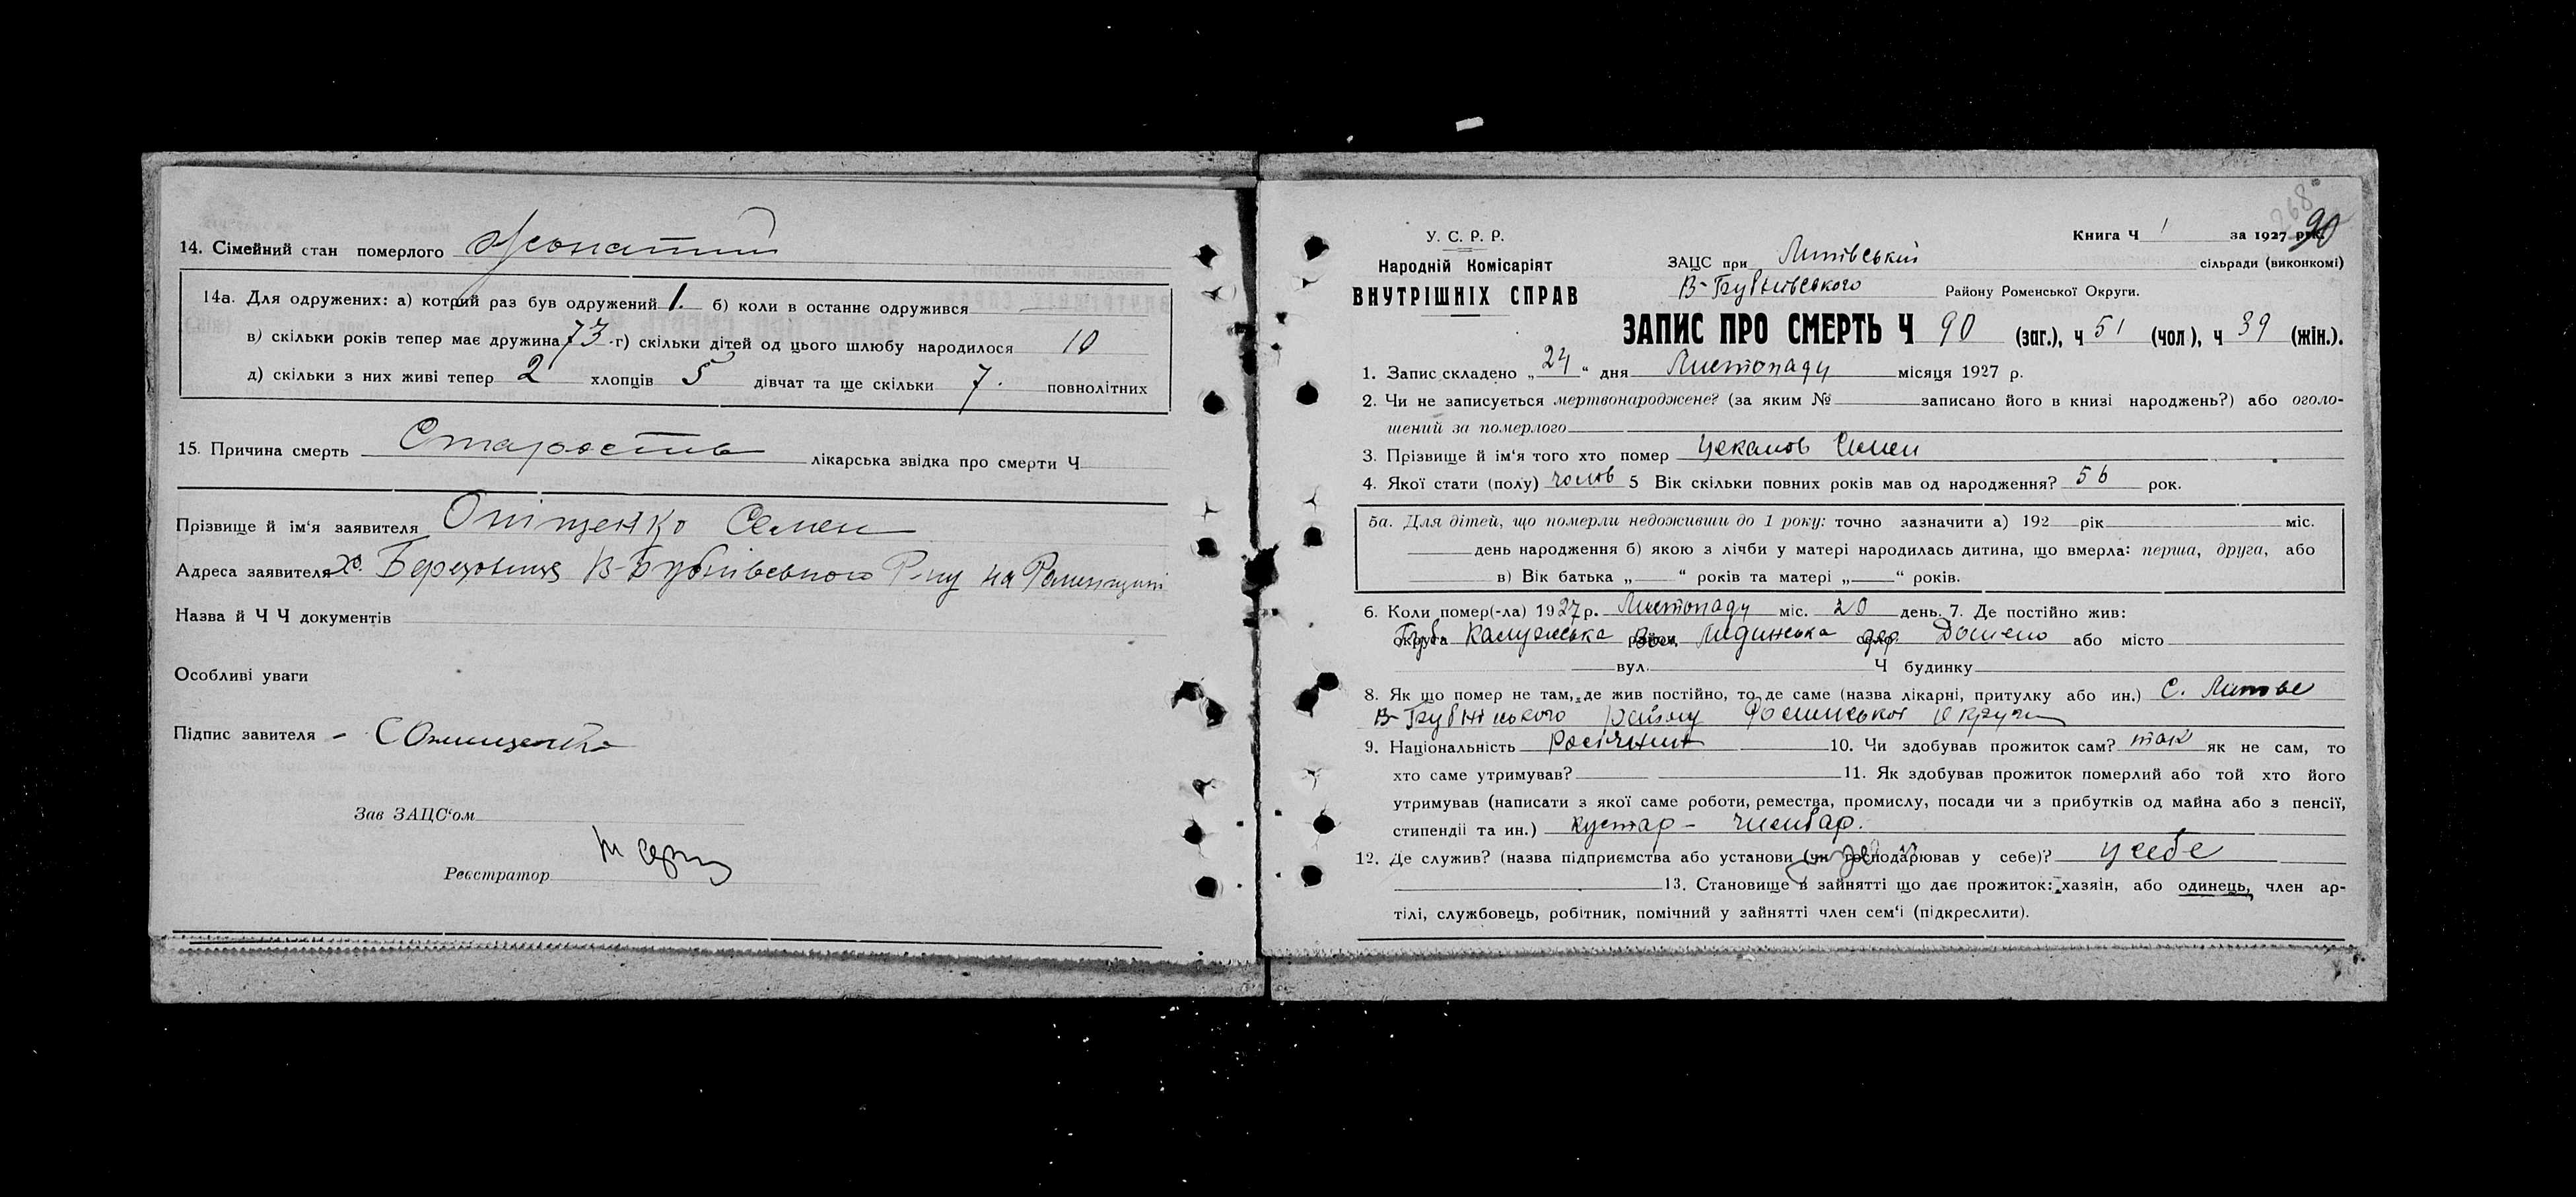 14. Сімейний стан померлого Жонатий
14а. Для одружених: а) котрий раз був одружений 1. б) коли в останнє одружився
в) скільки років тепер має дружина 73 г) скільки дітей од цього шлюбу народилося 10
д) скільки з них живі тепер 2 хлопців 5 дівчат та ще скільки 7. повнолітних
15. Причина смерть Старость лікарська звідка про смерти Ч
Прізвище й ім'я заявителя Оніщенко Семен
Адреса заявителя Хо. В-Бубнівського Р-ну на Роменщині
Назва й Ч Ч документів
Особливі уваги
Підпис завителя - С Онищенко
Зав ЗАЦС'ом
Реєстратор
268
90
У. С. Р. Р.
Народній Комісаріят
ВНУТРІШНІХ СПРАВ
Книга Ч 1 за 1927 рік.
ЗАЦС при Липівський сільради (виконкомі)
В-Бубнівського Району Роменської Округи.
ЗАПИС ПРО СМЕРТЬ Ч 90 (заг.), ч 51 (чол), ч 39 (жін.).
1. Запис складено „24" дня Листопаду місяця 1927 р.
2. Чи не записується мертвонароджене? (за яким № записано його в книзі народжень?) або оголо-
шений за померлого
3. Прізвище й ім'я того хто помер Цекамов Семен
4. Якої стати (полу) чолов 5 Вік скільки повних років мав од народження? 56 рок.
5а. Для дітей, що померли недоживши до 1 року: точно зазначити а) 192 рік міс.
день народження б) якою з лічби у матері народилась дитина, що вмерла: перша, друга, або
в) Вік батька „ " років та матері „ " років.
6. Коли помер(-ла) 1927 р. Листопаду міс. 20 день. 7. Де постійно жив:
округа Губ Калужська район Вол. Медынська село дер. або місто
вул. Ч будинку
8. Як що помер не там, де жив постійно, то де саме (назва лікарні, притулку або ин.) С. Липове
В-Бубнівського району Роменської Округи
9. Національність Росіянин 10. Чи здобував прожиток сам? так як не сам, то
хто саме утримував? 11. Як здобував прожиток померлий або той хто його
утримував (написати з якої саме роботи, ремества, промислу, посади чи з прибутків од майна або з пенсії,
стипендії та ин.) кустар - чимбар.
12. Де служив? (назва підприємства або установи (чи господарював у себе)? у себе
13. Становище в зайнятті що дає прожиток: хазяін, або одинець, член ар-
тілі, службовець, робітник, помічний у зайнятті член сем'і (підкреслити).